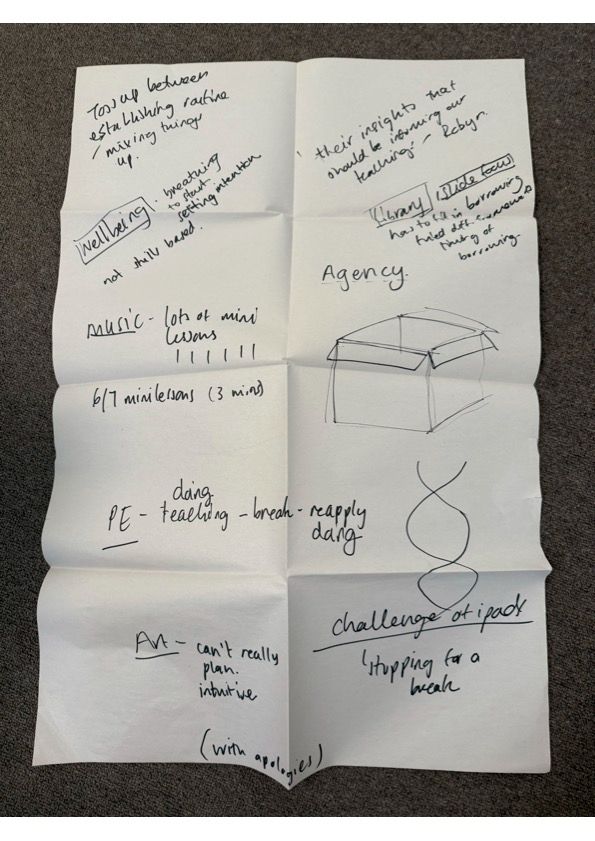 Toss up between
establishing routine
/ mixing things
up.
their insights that
should be informing our
teaching - Robyn.
Wellbeing · breathing
to start
setting intention
not skills based.
Library (slide focus)
how to fit in borrowing
tried diff
timing of
borrowing.
Agency.
music - lots of mini
lessons
6/7 minilessons (3 mins)
doing
PE - teaching - break - reapply
doing
Art - can't really
plan.
intuitive
challenge of ipads
'stopping for a
break
(with apologies)